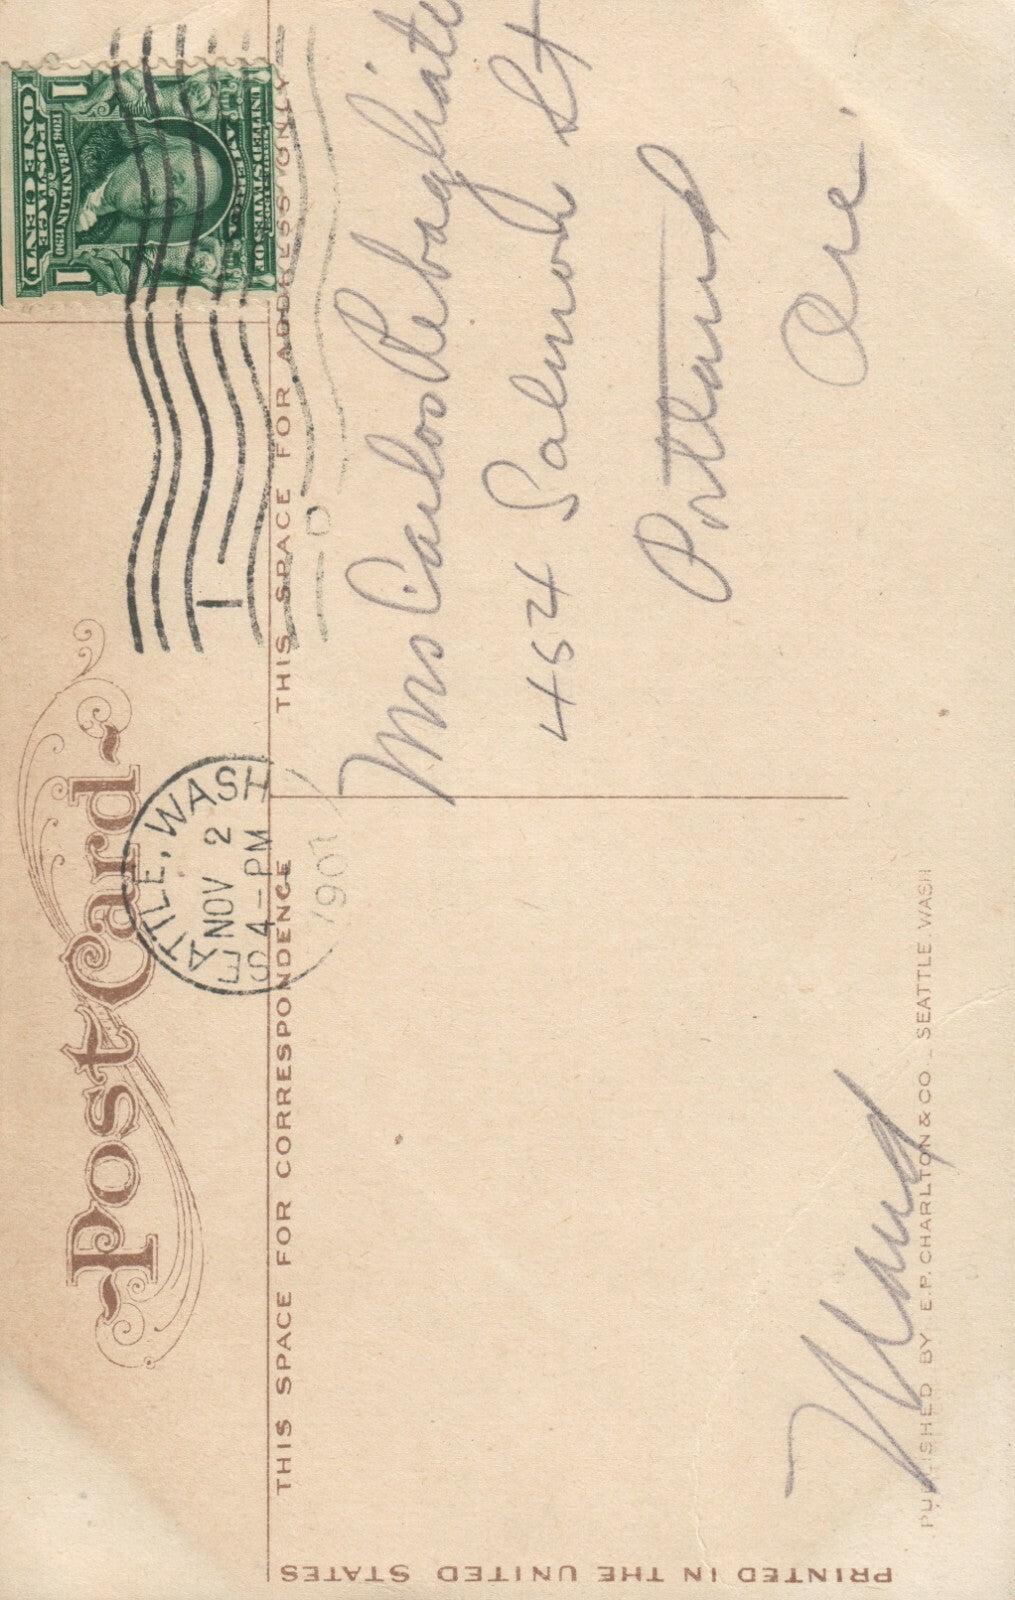 Post Card
THIS SPACE FOR CORRESPONDENCE
THIS SPACE FOR ADDRESS ONLY
SEATTLE, WASH
NOV 2
4-PM
1907
1
D
UNITED STATES OF
AMERICA
1706 FRANKLIN 1790
POSTAGE
1 ONE CENT 1
Mrs Carlos Rebagliate
454 Salmon St
Portland
Ore.
Maud
PUBLISHED BY E.P. CHARLTON & CO. SEATTLE, WASH
PRINTED IN THE UNITED STATES